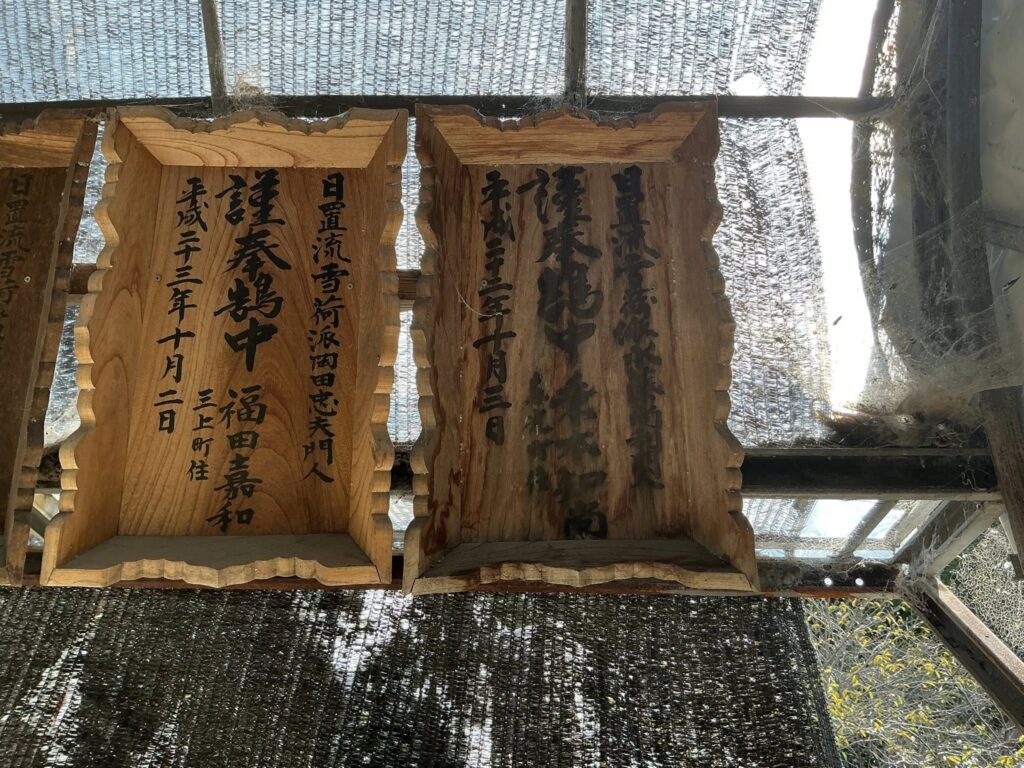 日置流雪荷派
謹奉鵠中
和尚
平成二十二年十月三日
日置流雪荷派岡田忠夫門人
謹奉鵠中 福田嘉和
三上町住
平成二十三年十月二日
日置流雪荷